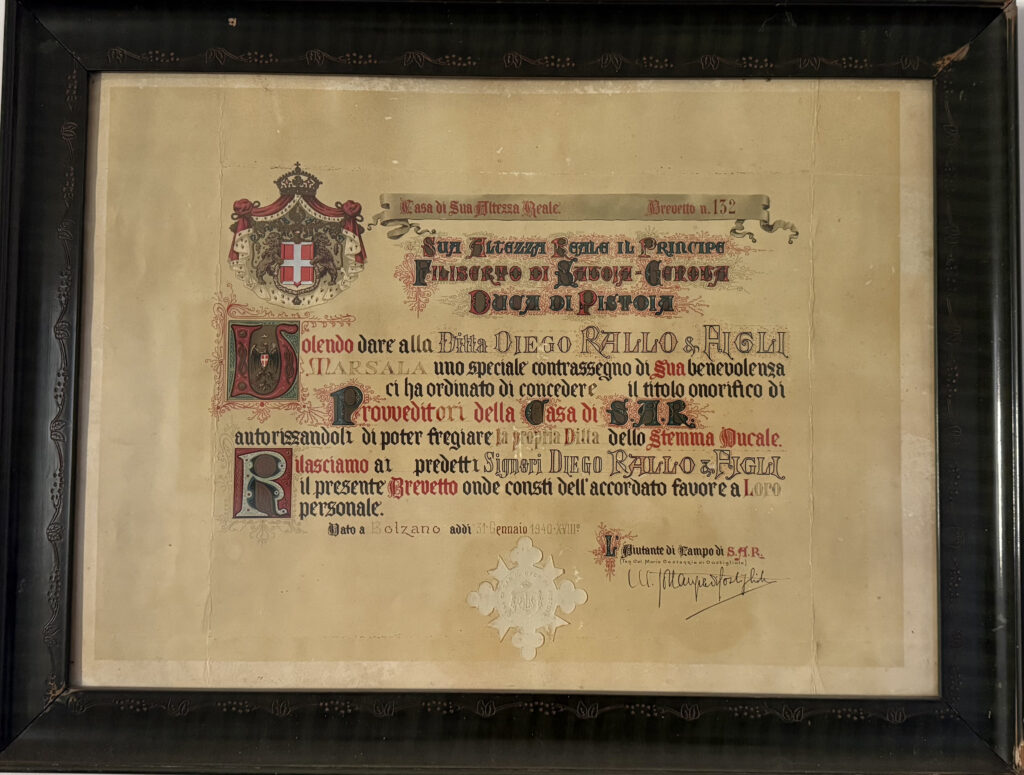 Casa di Sua Altezza Reale. Brevetto n. 132
Sua Altezza Reale il Principe
Filiberto di Savoia-Genova
Duca di Pistoia
Volendo dare alla Ditta DIEGO RALLO & FIGLI
MARSALA uno speciale contrassegno di Sua benevolenza
ci ha ordinato di concedere il titolo onorifico di
Provveditori della Casa di S.A.R.
autorizzandoli di poter fregiare la propria Ditta dello Stemma Ducale.
Rilasciamo ai predetti Signori DIEGO RALLO & FIGLI
il presente Brevetto onde consti dell'accordato favore a Loro
personale.
Dato a Bolzano addì 31 Gennaio 1940-XVIIIº
L'Aiutante di Campo di S.A.R.
(Ten. Col. Mario